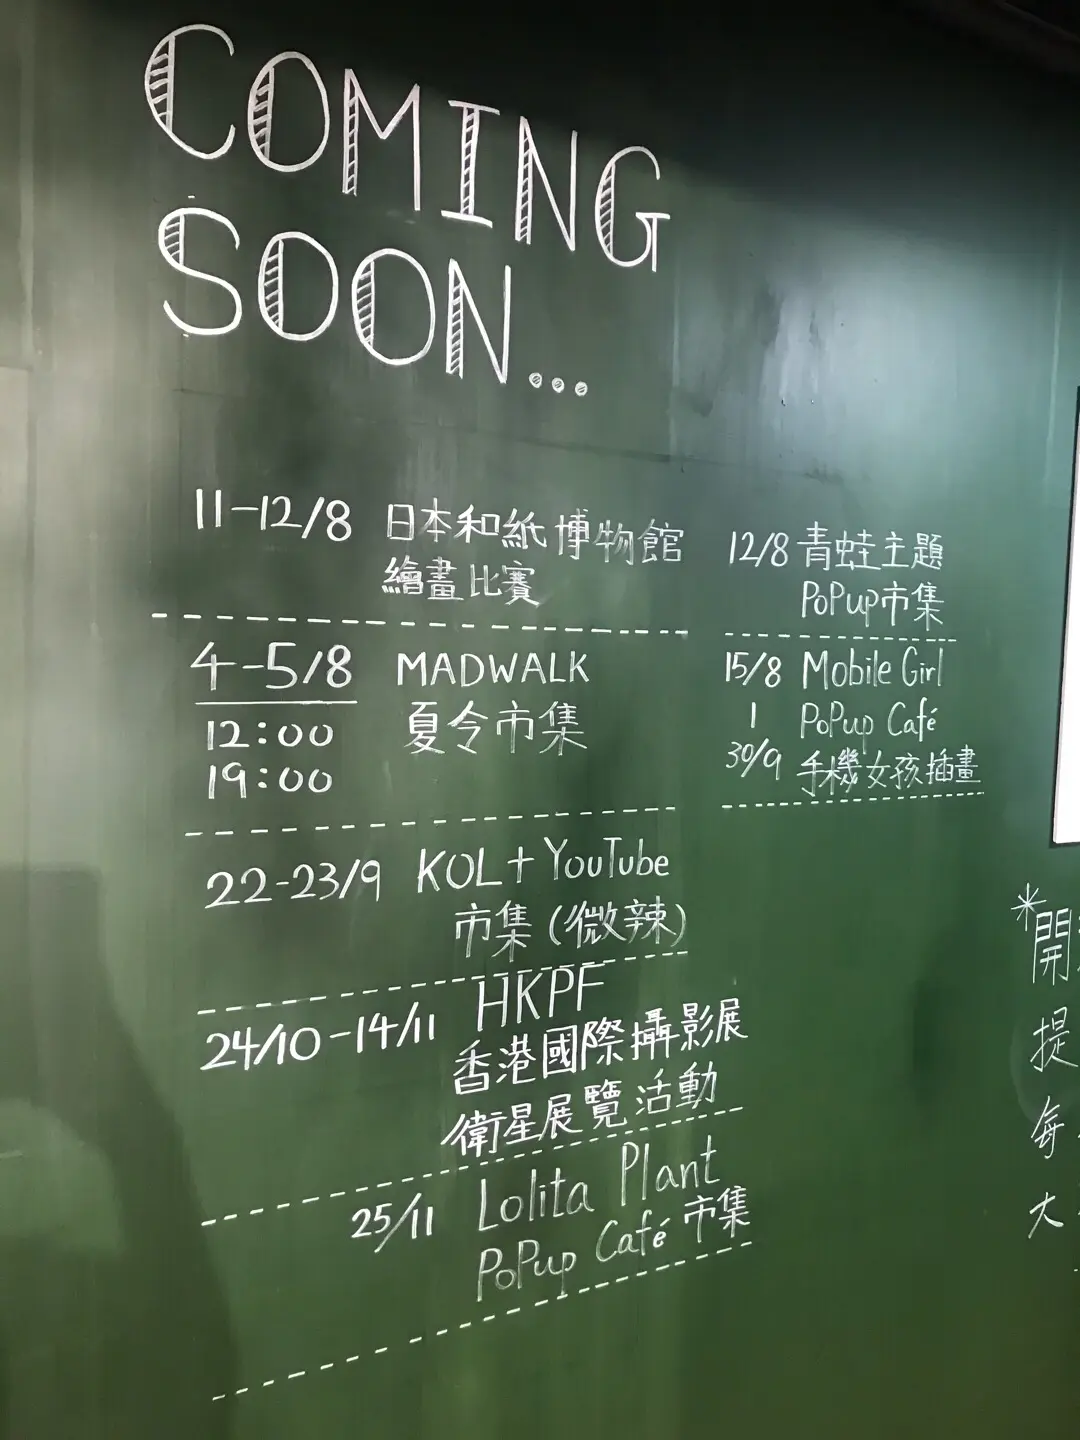 COMING
SOON...
11-12/8 日本和紙博物館
繪畫比賽
4-5/8 MADWALK
12:00 夏令市集
19:00
22-23/9 KOL+YouTube
市集(微辣)
24/10-14/11 HKPF
香港國際攝影展
衛星展覽活動
25/11 Lolita Plant
PoPup Café 市集
12/8 青蛙主題
PoPup市集
15/8 Mobile Girl
| PoPup Café
30/9 手機女孩插畫
*開
提
每
大